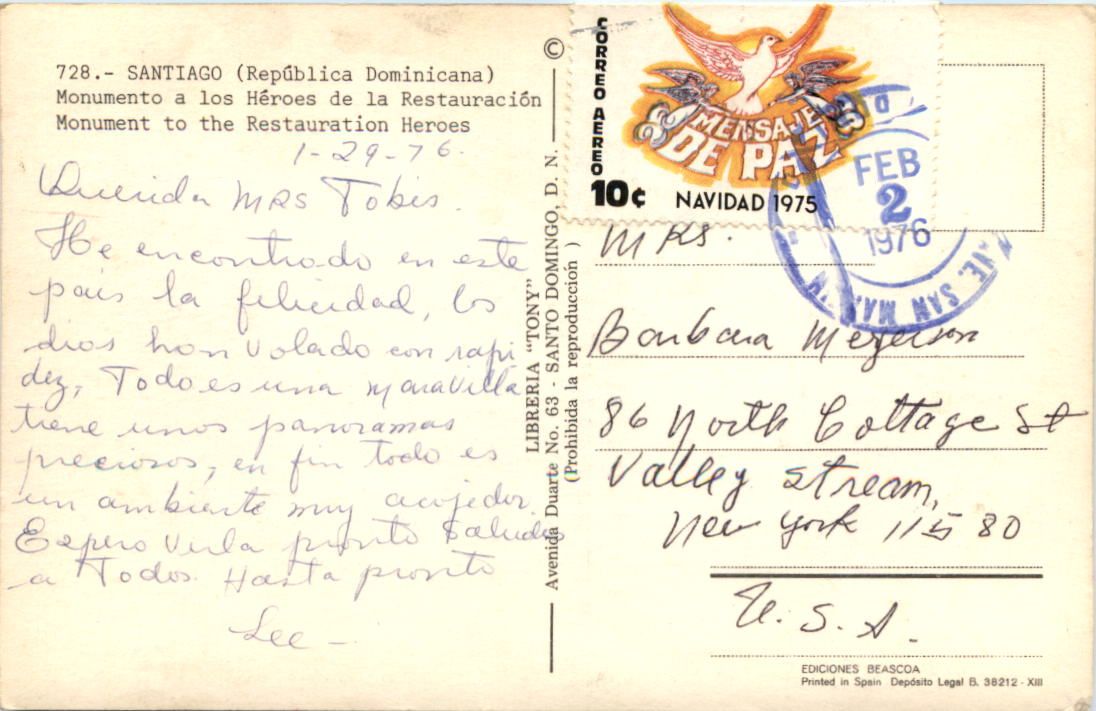 728.- SANTIAGO (República Dominicana)
Monumento a los Héroes de la Restauración
Monument to the Restauration Heroes
1-29-76.
Querida MRS Tobis.
He encontrado en este
país la felicidad, los
dias han volado con rapi
dez, Todo es una maravilla
tiene unos panoramas
preciosos, en fin todo es
un ambiente muy acojedor.
Espero verla pronto Saludos
a Todos. Hasta pronto
Lee -
©
LIBRERIA "TONY"
Avenida Duarte No. 63 - SANTO DOMINGO, D. N.
(Prohibida la reproducción)
CORREO AEREO
MENSAJE
DE PAZ
10¢ NAVIDAD 1975
FEB
2
1976
SAN
MRS.
Barbara Meyerson
86 North Cottage St
Valley Stream,
New York 11580
U.S.A.
EDICIONES BEASCOA
Printed in Spain Depósito Legal B. 38212 - XIII